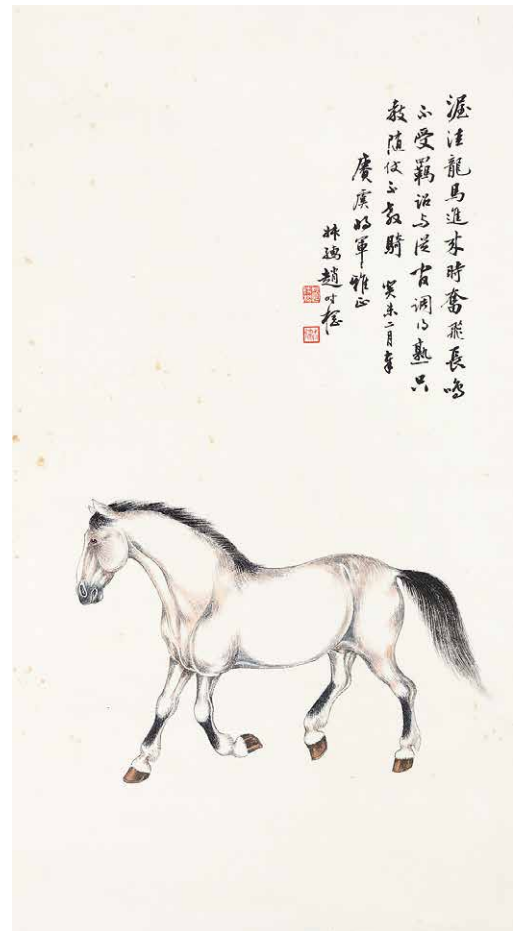 渥洼龍馬進來時奮飛長鳴
不受羈詔与從官調得熟只
教隨仗不教騎 癸未二月奉
賡虞將軍雅正
叔孺趙時棡